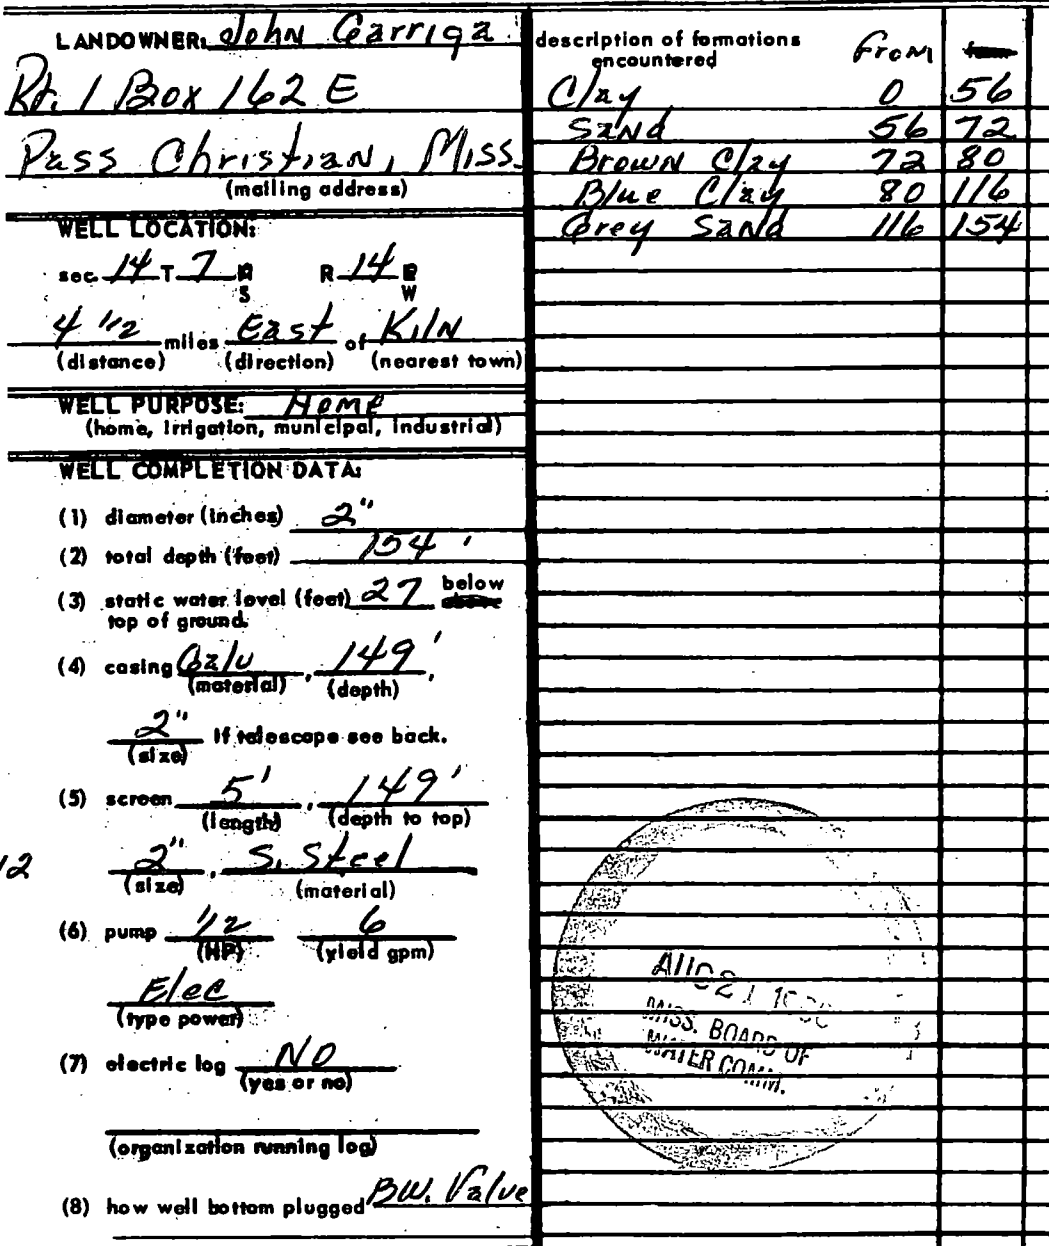 LANDOWNER: John Garriga
Rt. 1 Box 162 E
Pass Christian, Miss.
(mailing address)
WELL LOCATION:
sec. 14 T 7 N S R 14 E W
4 1/2 miles East of Kiln
(distance) (direction) (nearest town)
WELL PURPOSE: Home
(home, irrigation, municipal, industrial)
WELL COMPLETION DATA:
(1) diameter (inches) 2"
(2) total depth (feet) 154 '
(3) static water level (feet) 27 below
top of ground.
(4) casing Galv , 149 ' ,
(material) (depth)
2" if telescope see back.
(size)
(5) screen 5' , 149 '
(length) (depth to top)
12 2" , S. Steel
(size) (material)
(6) pump 1/2 6
(HP) (yield gpm)
Elec
(type power)
(7) electric log NO
(yes or no)
(organization running log)
(8) how well bottom plugged BW. Valve
description of formations From
encountered
Clay 0 56
Sand 56 72
Brown Clay 72 80
Blue Clay 80 116
Grey Sand 116 154
MISS. BOARD OF
WATER COMM.